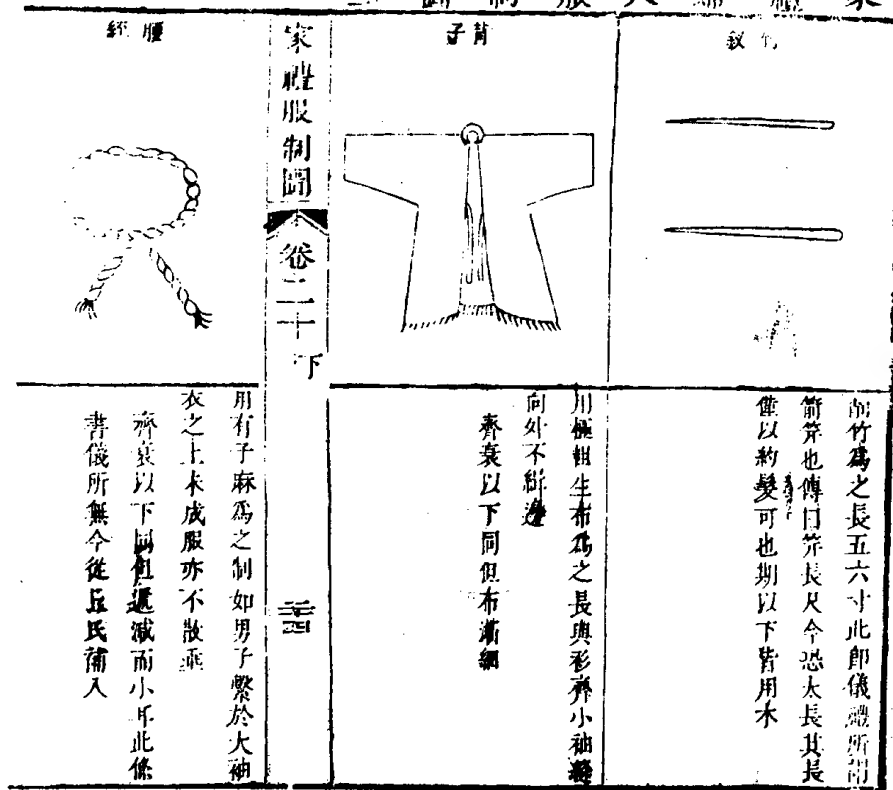 竹釵
削竹為之長五六寸此卽儀禮所謂
箭筓也傳曰筓長尺今恐太長其長
僅以約髮可也期以下皆用木
背子
用極粗生布為之長與衫齊小袖縫
向外不緝邊
齊衰以下同但布漸細
家禮服制圖
卷二十下
腰絰
用有子麻為之制如男子繫於大袖
衣之上未成服亦不散垂
齊衰以下同但遞減而小耳此條
書儀所無今從丘氏補入